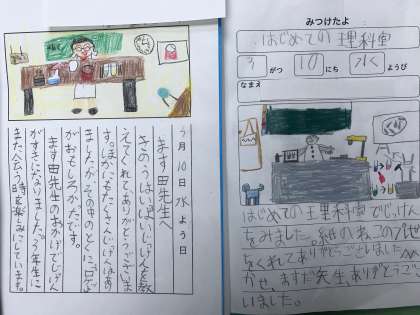 みつけたよ
はじめての理科室
がつ
10
にち
水
ようび
なまえ
はじめての理科室でじっけん
をみました。紙の
をくれてありがとうございました
かぜ、ますだ先生、ありがとうござ
いました。
月10日水よう日
ます田先生へ
きのうはいっぱいじっけんを教
えてくれて、ありがとうございま
す。
ましたが、その中のとくに、
がおもしろかったです。
ます田先生のおかげでじっけん
がすきになりました。3年生に
また会う時を楽しみにしています。